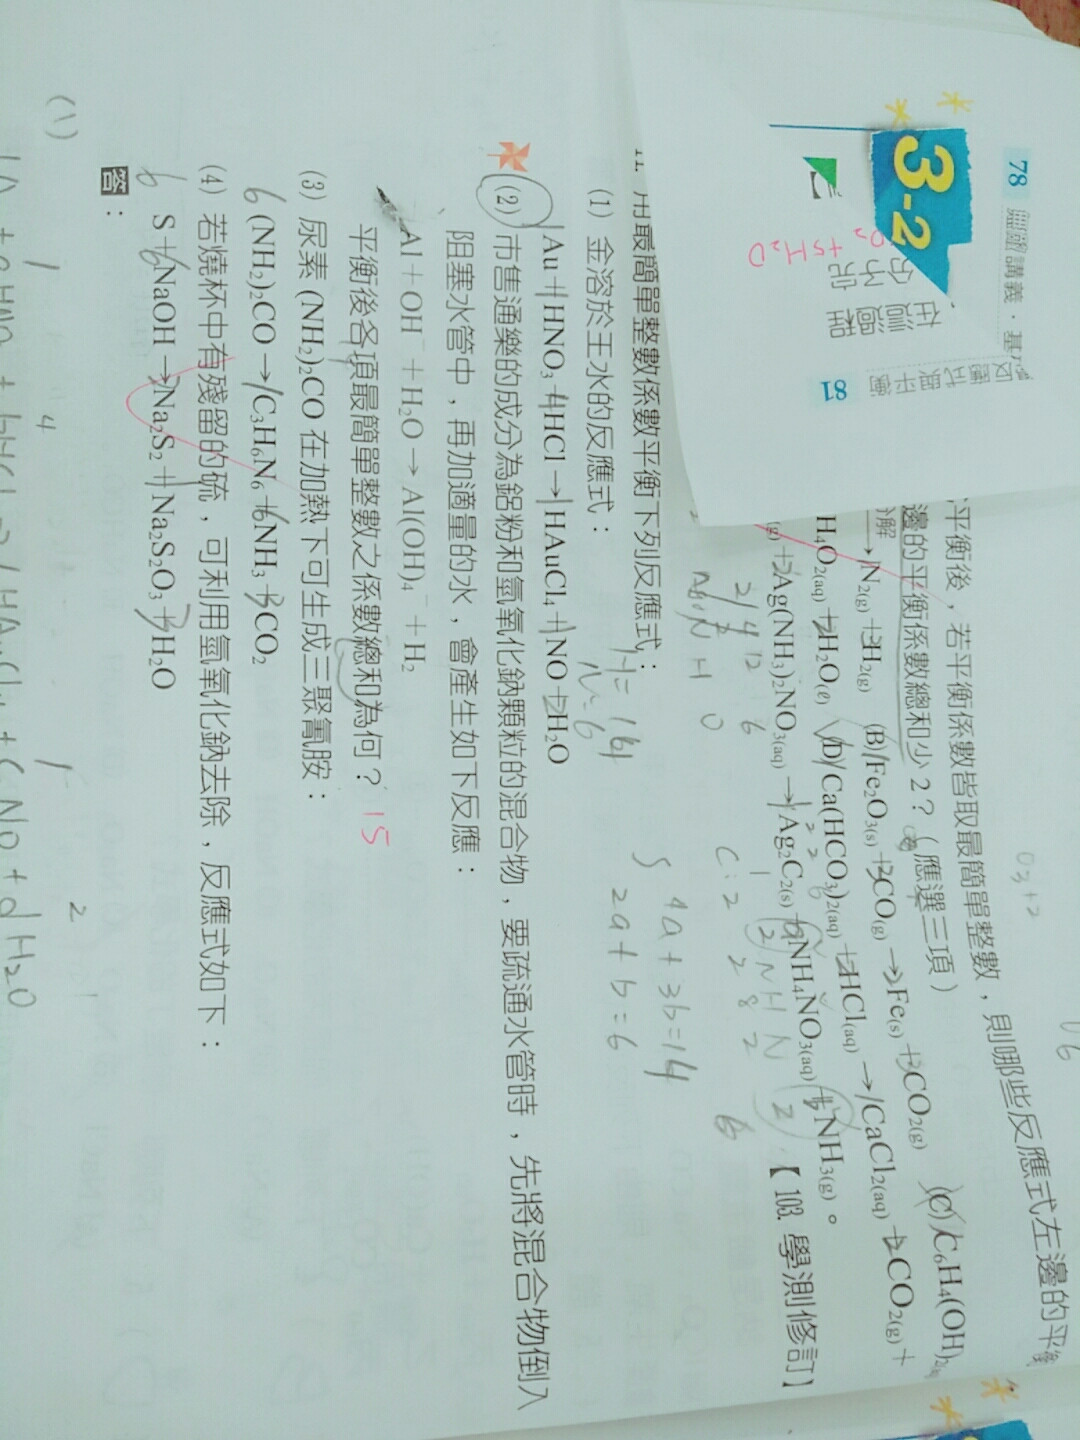 78 講義．基
3-2
反應式與平衡 81
在這過程
分子只
+5H₂O
平衡後，若平衡係數皆取最簡單整數，則哪些反應式左邊的平衡
邊的平衡係數總和少 2？（應選三項）
分解→N₂(g)+3H₂(g) (B)1Fe₂O₃(s)+3CO(g)→2Fe(s)+3CO₂(g) (C)1C₆H₄(OH)₂
H₄O₂(aq)+2H₂O(ℓ) (D)1Ca(HCO₃)₂(aq)+2HCl(aq)→1CaCl₂(aq)+2CO₂(g)+
(g)+2Ag(NH₃)₂NO₃(aq)→1Ag₂C₂(s)+NH₄NO₃(aq)+NH₃(g)。
【103. 學測修訂】
2 4 12 6
N H O
C:2
2NH N 2
2 8 2
6
4a+3b=14
2a+b=6
H=14
N=6
11. 用最簡單整數係數平衡下列反應式：
(1) 金溶於王水的反應式：
1Au+1HNO₃+4HCl→1HAuCl₄+1NO+2H₂O
(2) 市售通樂的成分為鋁粉和氫氧化鈉顆粒的混合物，要疏通水管時，先將混合物倒入
阻塞水管中，再加適量的水，會產生如下反應：
Al+OH⁻+H₂O→Al(OH)₄⁻+H₂
平衡後各項最簡單整數之係數總和為何？ 15
(3) 尿素 (NH₂)₂CO 在加熱下可生成三聚氰胺：
6(NH₂)₂CO→1C₃H₆N₆+6NH₃+3CO₂
(4) 若燒杯中有殘留的硫，可利用氫氧化鈉去除，反應式如下：
6S+6NaOH→2Na₂S₂+1Na₂S₂O₃+3H₂O
答：
(1) 1 4 1 2
NO+dH₂O